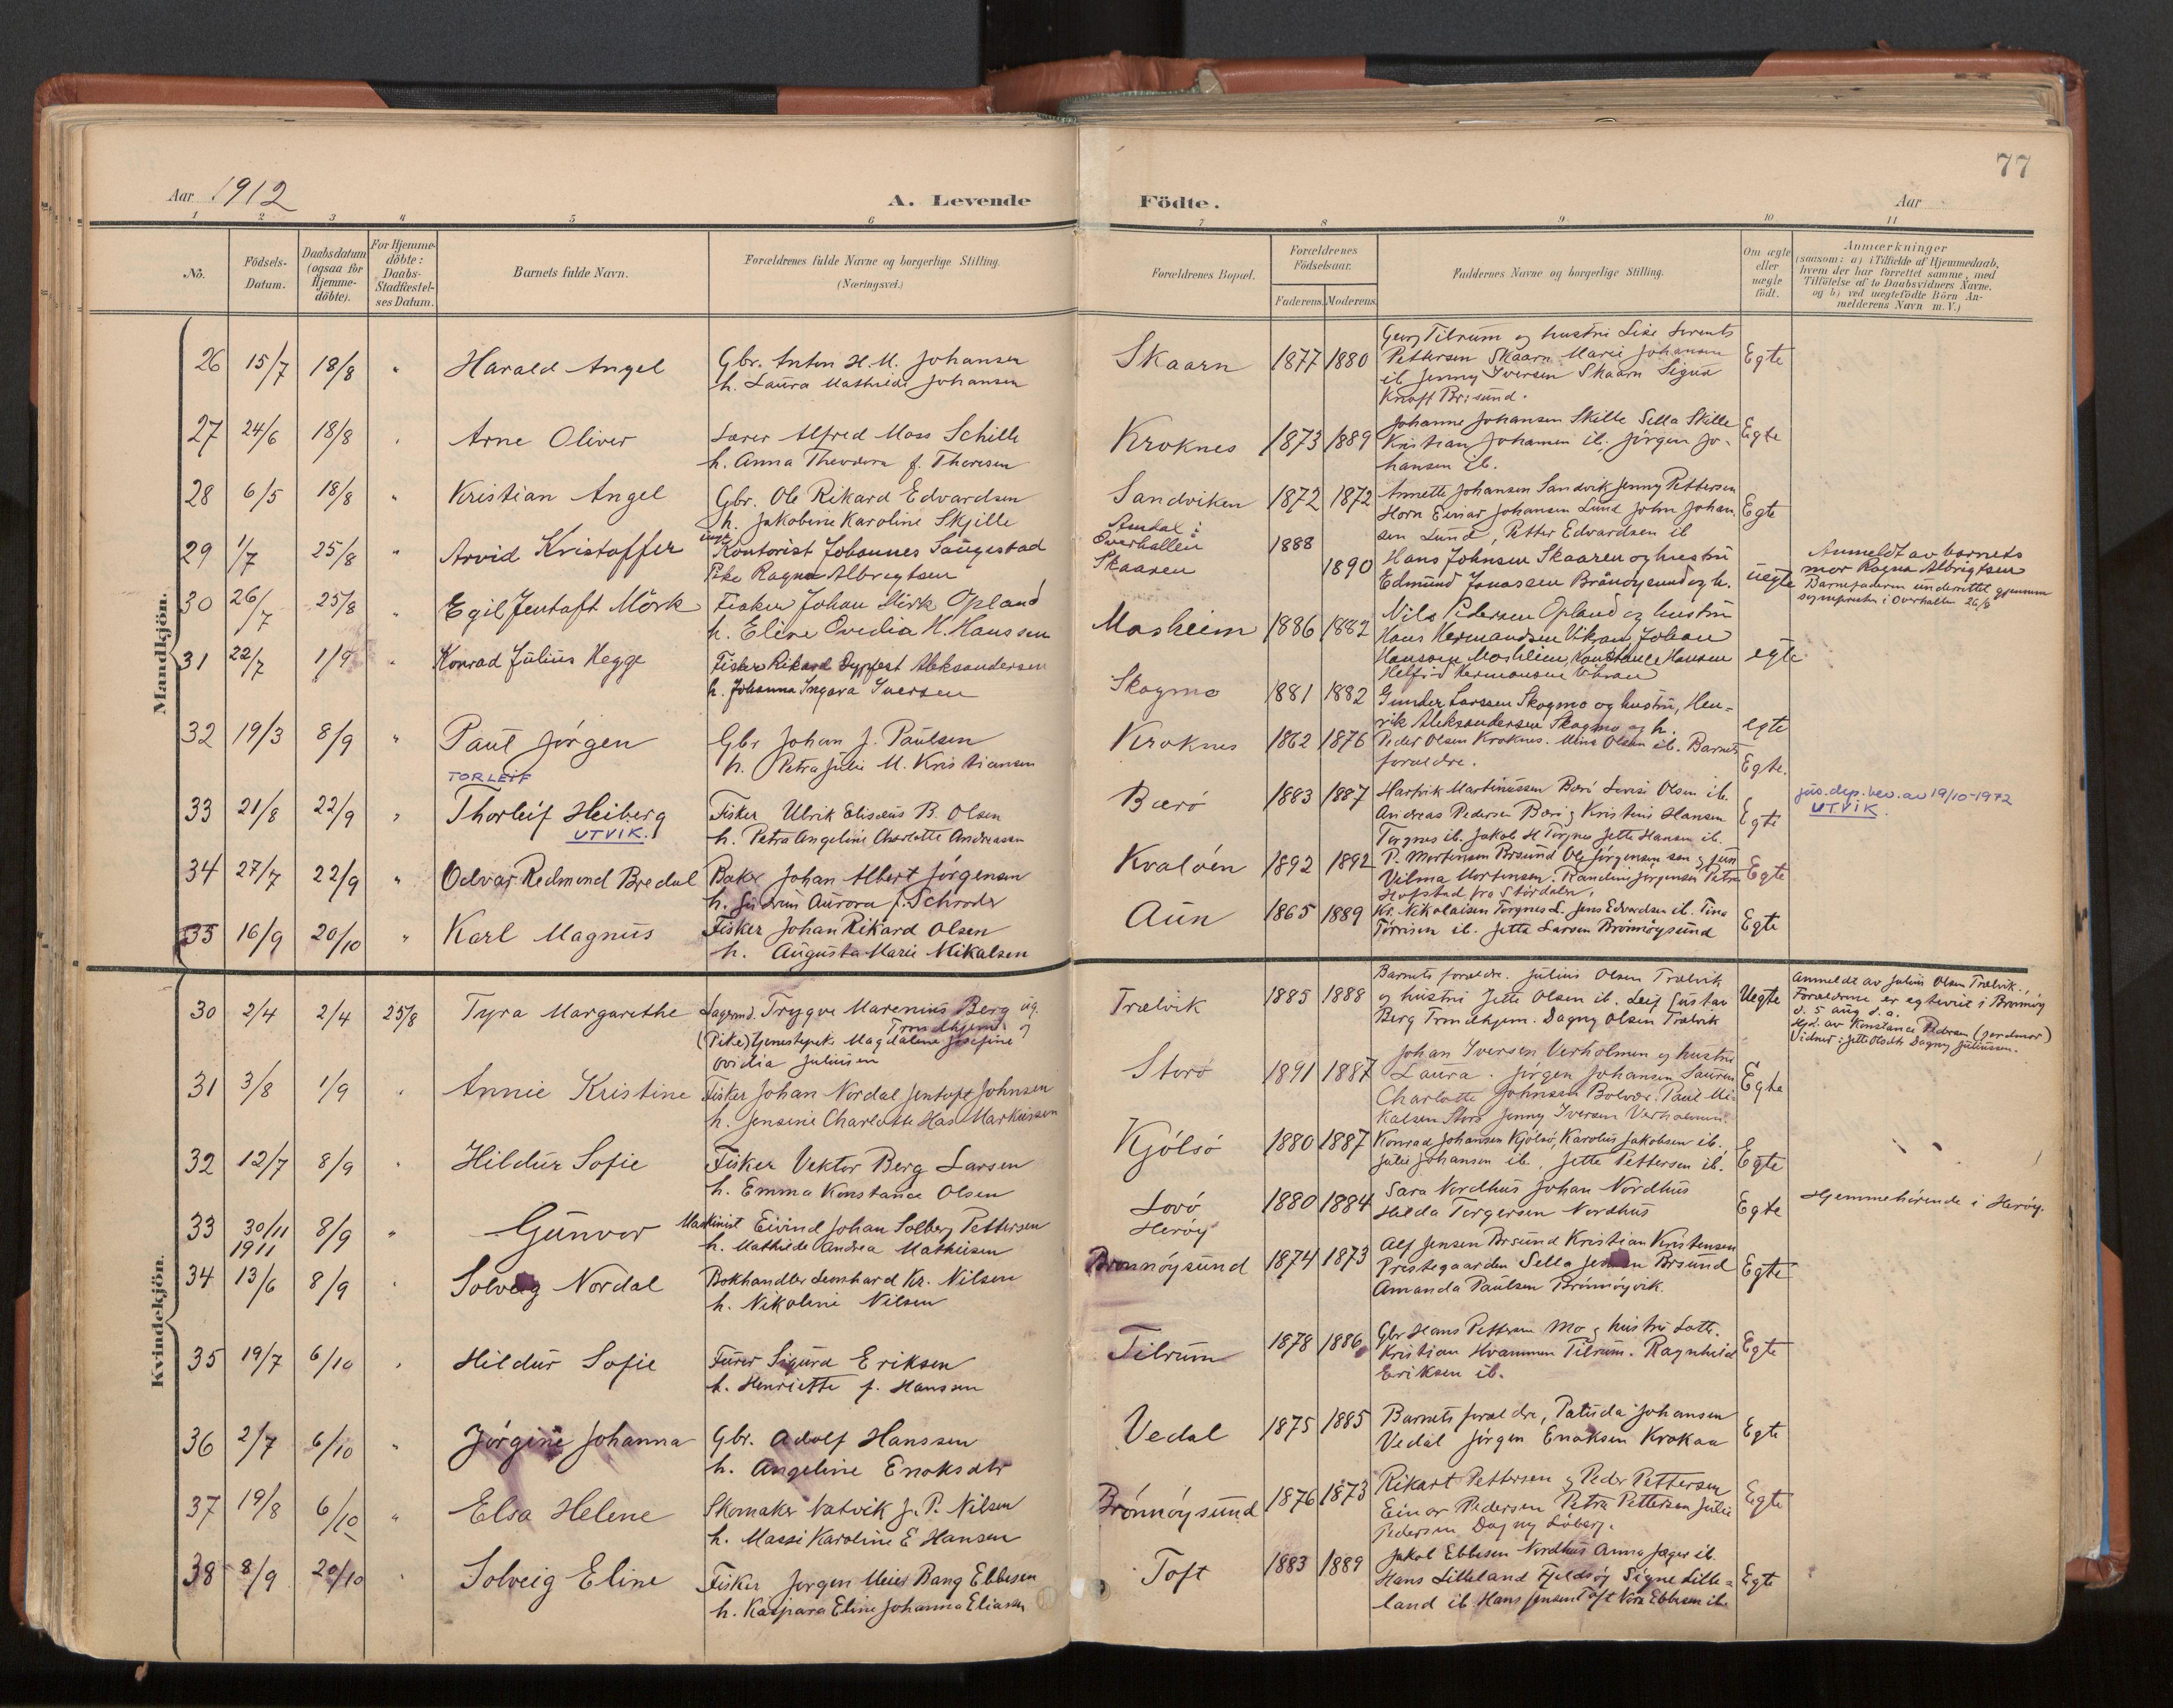 77
Aar 1912
A. Levende
Födte.
Aar
1 2 3 4 5 6 7 8 9 10 11
No.
Födsels-
Datum.
Daabsdatum
(ogsaa for
Hjemme-
döbte).
For Hjemme-
döbte:
Daabs-
Stadfæstel-
ses Datum.
Barnets fulde Navn.
Forældrenes fulde Navne og borgerlige Stilling.
(Næringsvei.)
Forældrenes Bopæl.
Forældrenes
Födselsaar.
Faderens. Moderens.
Faddernes Navne og borgerlige Stilling.
Om ægte
eller
uægte
födt.
Anmærkninger
(saasom: a) i Tilfælde af Hjemmedaab,
hvem der har forrettet samme, med
Tilföielse af to Daabsvidners Navne.
og b) ved uægtefödte Börn An-
melderens Navn m. V.)
Mandkjön.
26 15/7 18/8 " Harald Angel
Gbr. Anton H. M. Johansen
h. Laura Mathilde Johansen
Skaarn 1877 1880
Georg Tilrum og hustru Lise
Pettersen Skaarn Marie Johansen
ib. Jenny Iversen Skaarn Sigurd
Knoff Br:sund.
Egte
27 24/6 18/8 " Arne Oliver
Lærer Alfred Moss Schille
h. Anna Theodora f. Thoresen
Kroknes 1873 1889
Johanne Johansen Skille Sella Skille
Kristian Johansen ib. Jörgen Jo-
hansen ib.
Egte
28 6/5 18/8 " Kristian Angel
Gbr. Ole Rikard Edvardsen
h. Jakobine Karoline Skjille
Sandviken 1872 1872
Annette Johansen Sandvik Jenny Pettersen
Horn Einar Johansen Lund John Johan-
sen Lund, Petter Edvardsen ib
Egte
29 1/7 25/8 " Arvid Kristoffer
ungk. Kontorist Johannes Saugestad
Pike Ragna Albrigtsen
Overhallen
Skaaren
1888 1890
Hans Johnsen Skaaren og hustru
Edmund Jonassen Brönöysund og h.
uegte
Anmeldt av barnets
mor Ragna Albrigtsen
Barnefaderen underrettet gjennem
sognepresten i Overhallen 26/8
30 26/7 25/8 " Egil Jentoft Mörk
Fisker Johan Mörk Opland
h. Eline Ovedia H. Hanssen
Mosheim 1886 1882
Nils Pedersen Opland og hustru
Hans Hermandsen Vikran Johan
Hanssen Moshleim, Konstance Hansen
Helfrid Hermansen Vikran
egte
31 22/7 1/9 " Konrad Julius Hegge
Fisker Rikard Dypfest Aleksandersen
h. Johanna Ingara Iversen
Skogmo 1881 1882
Gunder Larssen Skogmo og hustru, Hen-
rik Aleksandersen Skogmo og h.
egte
32 19/3 8/9 " Paul Jörgen
Gbr Johan J. Paulsen
h. Petra Julie M. Kristiansen
Kroknes 1862 1876
Peder Olsen Kroknes. Mina Olsen ib. Barnets
forældre.
Egte.
TORLEIF
33 21/8 22/9 " Thorleif Heiberg
UTVIK.
Fisker Ulrik Elisæus B. Olsen
h. Petra Angeline Charlotte Andreassen
Bærö 1883 1887
Hartvik Martinussen Bærö Lovise Olsen ib.
Andreas Pedersen Bærö, Kristine Hansen
Torgnes ib. Jakob H Torgnes Jette Hansen ib.
Egte
jus. dep. bev. av 19/10-1972
UTVIK.
34 27/7 22/9 " Odvar Redmond Bredal
Baker Johan Albert Jörgensen
h. Gudrun Aurora f. Schröder
Kvalöen 1892 1892
P. Mortensen Brsund Ole Jörgensen sen og jun
Vilma Mortensen. Randine Jörgensen Petra
Hofstad fra Stördalen.
Egte
35 16/9 20/10 " Karl Magnus
Fisker Johan Rikard Olsen
h. Augusta Marie Mikalsen
Aun 1865 1889
Kr. Nikolaisen Torgnes L. Jens Edvardsen ib. Tina
Torrisen ib. Jette Larsen Brönnöysund
Egte
Kvindekjön.
30 2/4 2/4 25/8 Tyra Margarethe
Lagermd. Trygve Marenius Berg ug.
Trondhjem
(Pike) tjenestepek. Magdalena Josefine
Ovidia Juliussen
Trælvik 1885 1888
Barnets forældre. Julius Olsen Trælvik
og hustru Jette Olsen ib. Leif Gustav
Berg Trondhjem. Dagny Olsen Trælvik
Uegte
Anmeldt av Julius Olsen Trælvik.
Forældrene er egteviet i Brönnöy
d. 5 aug d. a.
Hjd. av Konstance Pedersen (jordmor)
Vidner: Jette Olsdtr Dagny Juliussen.
31 3/8 1/9 " Annie Kristine
Fisker Johan Nordal Jentoft Johnsen
h. Jensine Charlotte Has Markussen
Storö 1891 1887
Johan Iversen Verholmen og hustru
Laura. Jörgen Johansen Sauren
Charlotte Johnsen Bolvær. Paul Mi-
kalsen Storö Jenny Iversen Verholmen.
Egte
32 12/7 8/9 " Hildur Sofie
Fisker Vektor Berg Larsen
h. Emma Konstance Olsen
Kjölsö 1880 1887
Konrad Johansen Kjölsö, Karolus Jakobsen ib.
Julie Johansen ib. Jette Pettersen ib.
Egte
33 30/11 1911 8/9 " Gunvor
Maskinist Eivind Johan Solberg Pettersen
h. Mathilde Andrea Mathisen
Lovö
Heröy
1880 1884
Sara Nordhus Johan Nordhus
Hilda Torgersen Nordhus
Egte
Hjemmehörende i Heröy.
34 13/6 8/9 " Solveig Nordal
Bokhandler Lernhard Kr. Nilsen
h. Nikoline Nilsen
Brönnöysund 1874 1873
Alf Jensen Brsund Kristian Kristensen
Prestegaarden Sella Jensen Brsund
Amanda Paulsen Brönnöyvik.
Egte
35 19/7 6/10 " Hildur Sofie
Furer Sigurd Eriksen
h. Henriette f. Hansen
Tilrum 1878 1886
Gbr Hans Pettersen Mo og hustru Lotte.
Kristian Kvammen Tilrum. Ragnhild
Eriksen ib.
Egte
36 2/7 6/10 " Jörgine Johanna
Gbr. Adolf Hanssen
h. Angeline Enoksdtr
Vedal 1875 1885
Barnets forældre, Paluda Johansen
Vedal Jörgen Enoksen Krokaa
Egte
37 19/8 6/10 " Elsa Helene
Skomaker Natvik J. P. Nilsen
h. Massi Karoline E Hansen
Brönnöysund 1876 1873
Rikart Pettersen og Peder Pettersen
Einar Pedersen Petra Pettersen Julie
Pedersen Dagny Söberg.
Egte
38 8/9 20/10 " Solveig Eline
Fisker Jörgen Meier Bang Ebbesen
h. Kaspara Eline Johanna Eliasen
Toft 1883 1889
Jakob Ebbesen Nordhus Anna Jæger ib.
Hans Lilleland Fjeldsöy Signe Lille-
land ib. Hans Jensen Toft Nora Ebbesen ib.
Egte